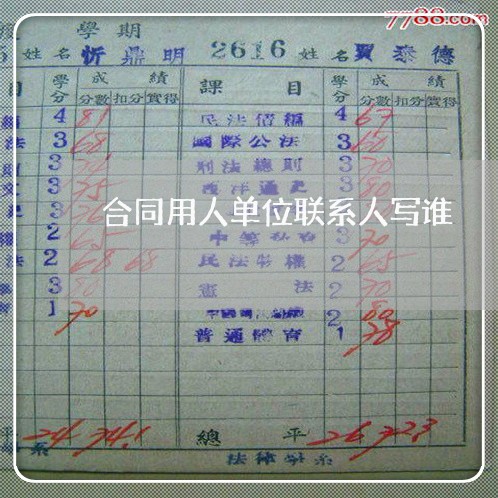 7788.com
學期
5 姓名 忻鼎明 2616 姓名 賈泰德
目 學分 成績 課目 學分 成績
分數 扣分 實得 分數 扣分 實得
4 81 民法債編 4 67
法 3 68 國際公法 3 60
3 刑法總則 3 70
3 75 西洋通史 3 80
合同用人单位联系人写谁
2 65 3 70
法 2 68 68 民法物權 2 65
3 80 憲法 2 70
1 70 2 80
普通體育 1 78
平 24 74.1 總平 26 72.3
系 法律學系